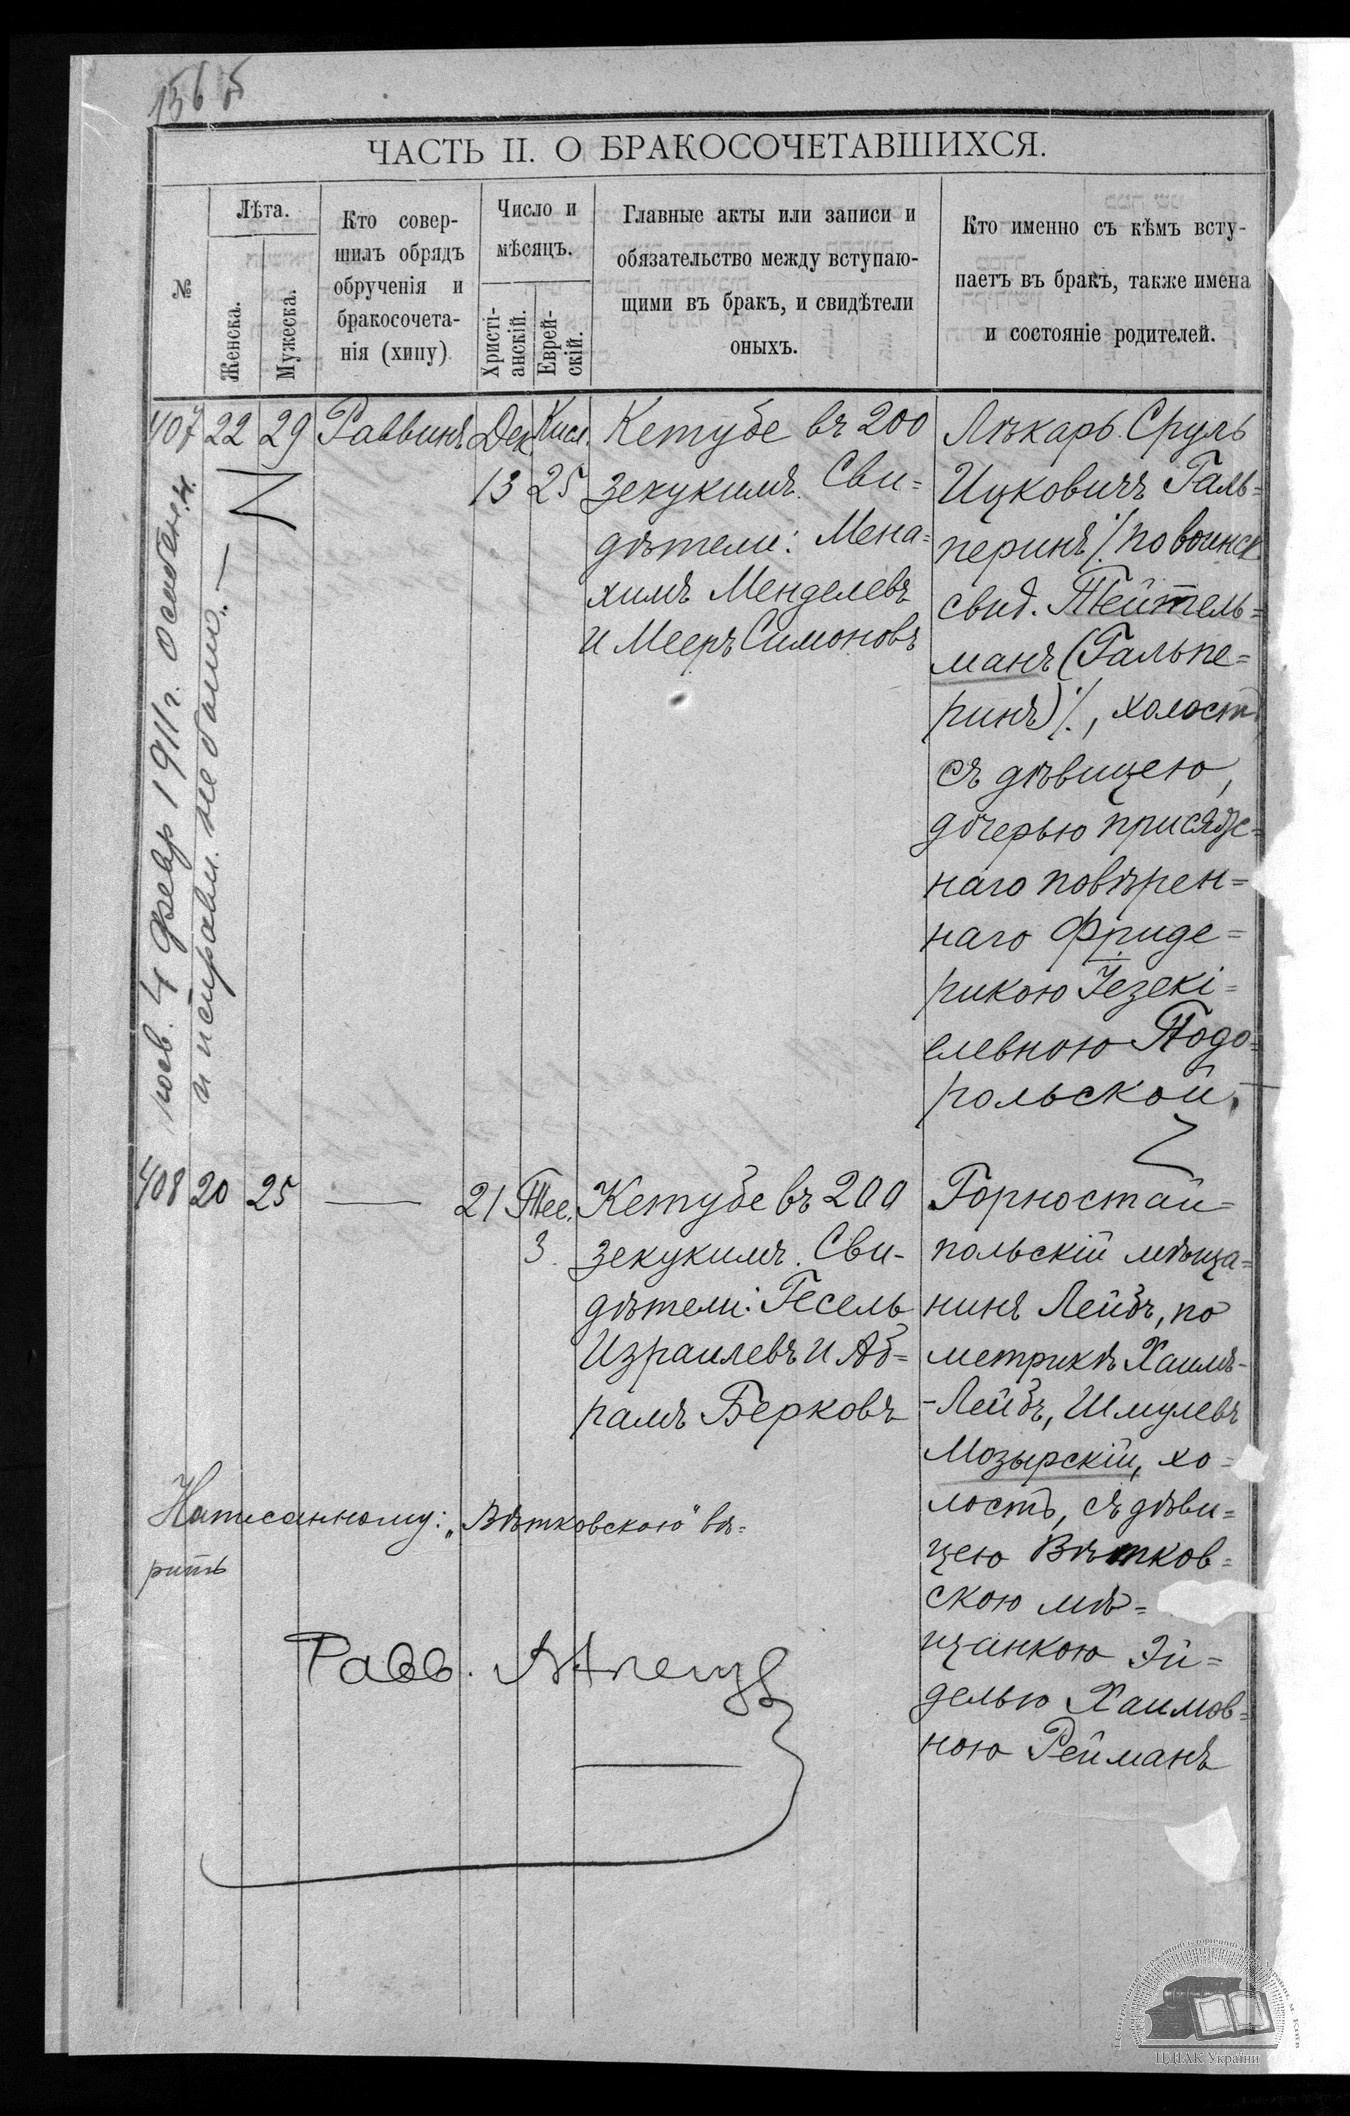 156 б
ЧАСТЬ II. О БРАКОСОЧЕТАВШИХСЯ.
№
Лѣта.
Женска.
Мужеска.
Кто совер-
шилъ обрядъ
обрученія и
бракосочета-
нія (хипу)
Число и
мѣсяцъ.
Христі-
анскій.
Еврей-
скій.
Главные акты или записи и
обязательство между вступаю-
щими въ бракъ, и свидѣтели
оныхъ.
Кто именно съ кѣмъ всту-
паетъ въ бракъ, также имена
и состояніе родителей.
407
22
29
Раввинъ
Дек.
13
Кисл.
25
Кетубе въ 200
зекукимъ. Сви=
дѣтели: Мена=
химъ Менделевъ
и Мееръ Симоновъ
Лѣкарь Сруль
Ицковичъ Галь=
перинъ /по воинск
свид. Тейтель=
манъ (Гальпе=
ринъ)/, холостъ
съ дѣвицею,
дочерью присяж=
наго повѣрен=
наго Фриде=
рикою Іезекі=
елевною Подо=
рольской.
4 февр 1911 г.
и исправл. не было. —
408
20
25
—
21
Тев.
3.
Кетубе въ 200
зекукимъ. Сви-
дѣтели: Гесель
Израилевъ и Аб=
рамъ Берковъ
Горностай=
польскій мѣща=
нинъ Лейбъ, по
метрикѣ Хаимъ-
-Лейбъ, Шмулевъ
Мозырскій, хо=
лостъ, съ дѣви=
цею Вѣтков=
скою мѣ=
щанкою Эй=
делью Хаимов=
ною Рейманъ
Написанному: „Вѣтковскою" вѣ=
рить
Равв.
ЦДІАК України